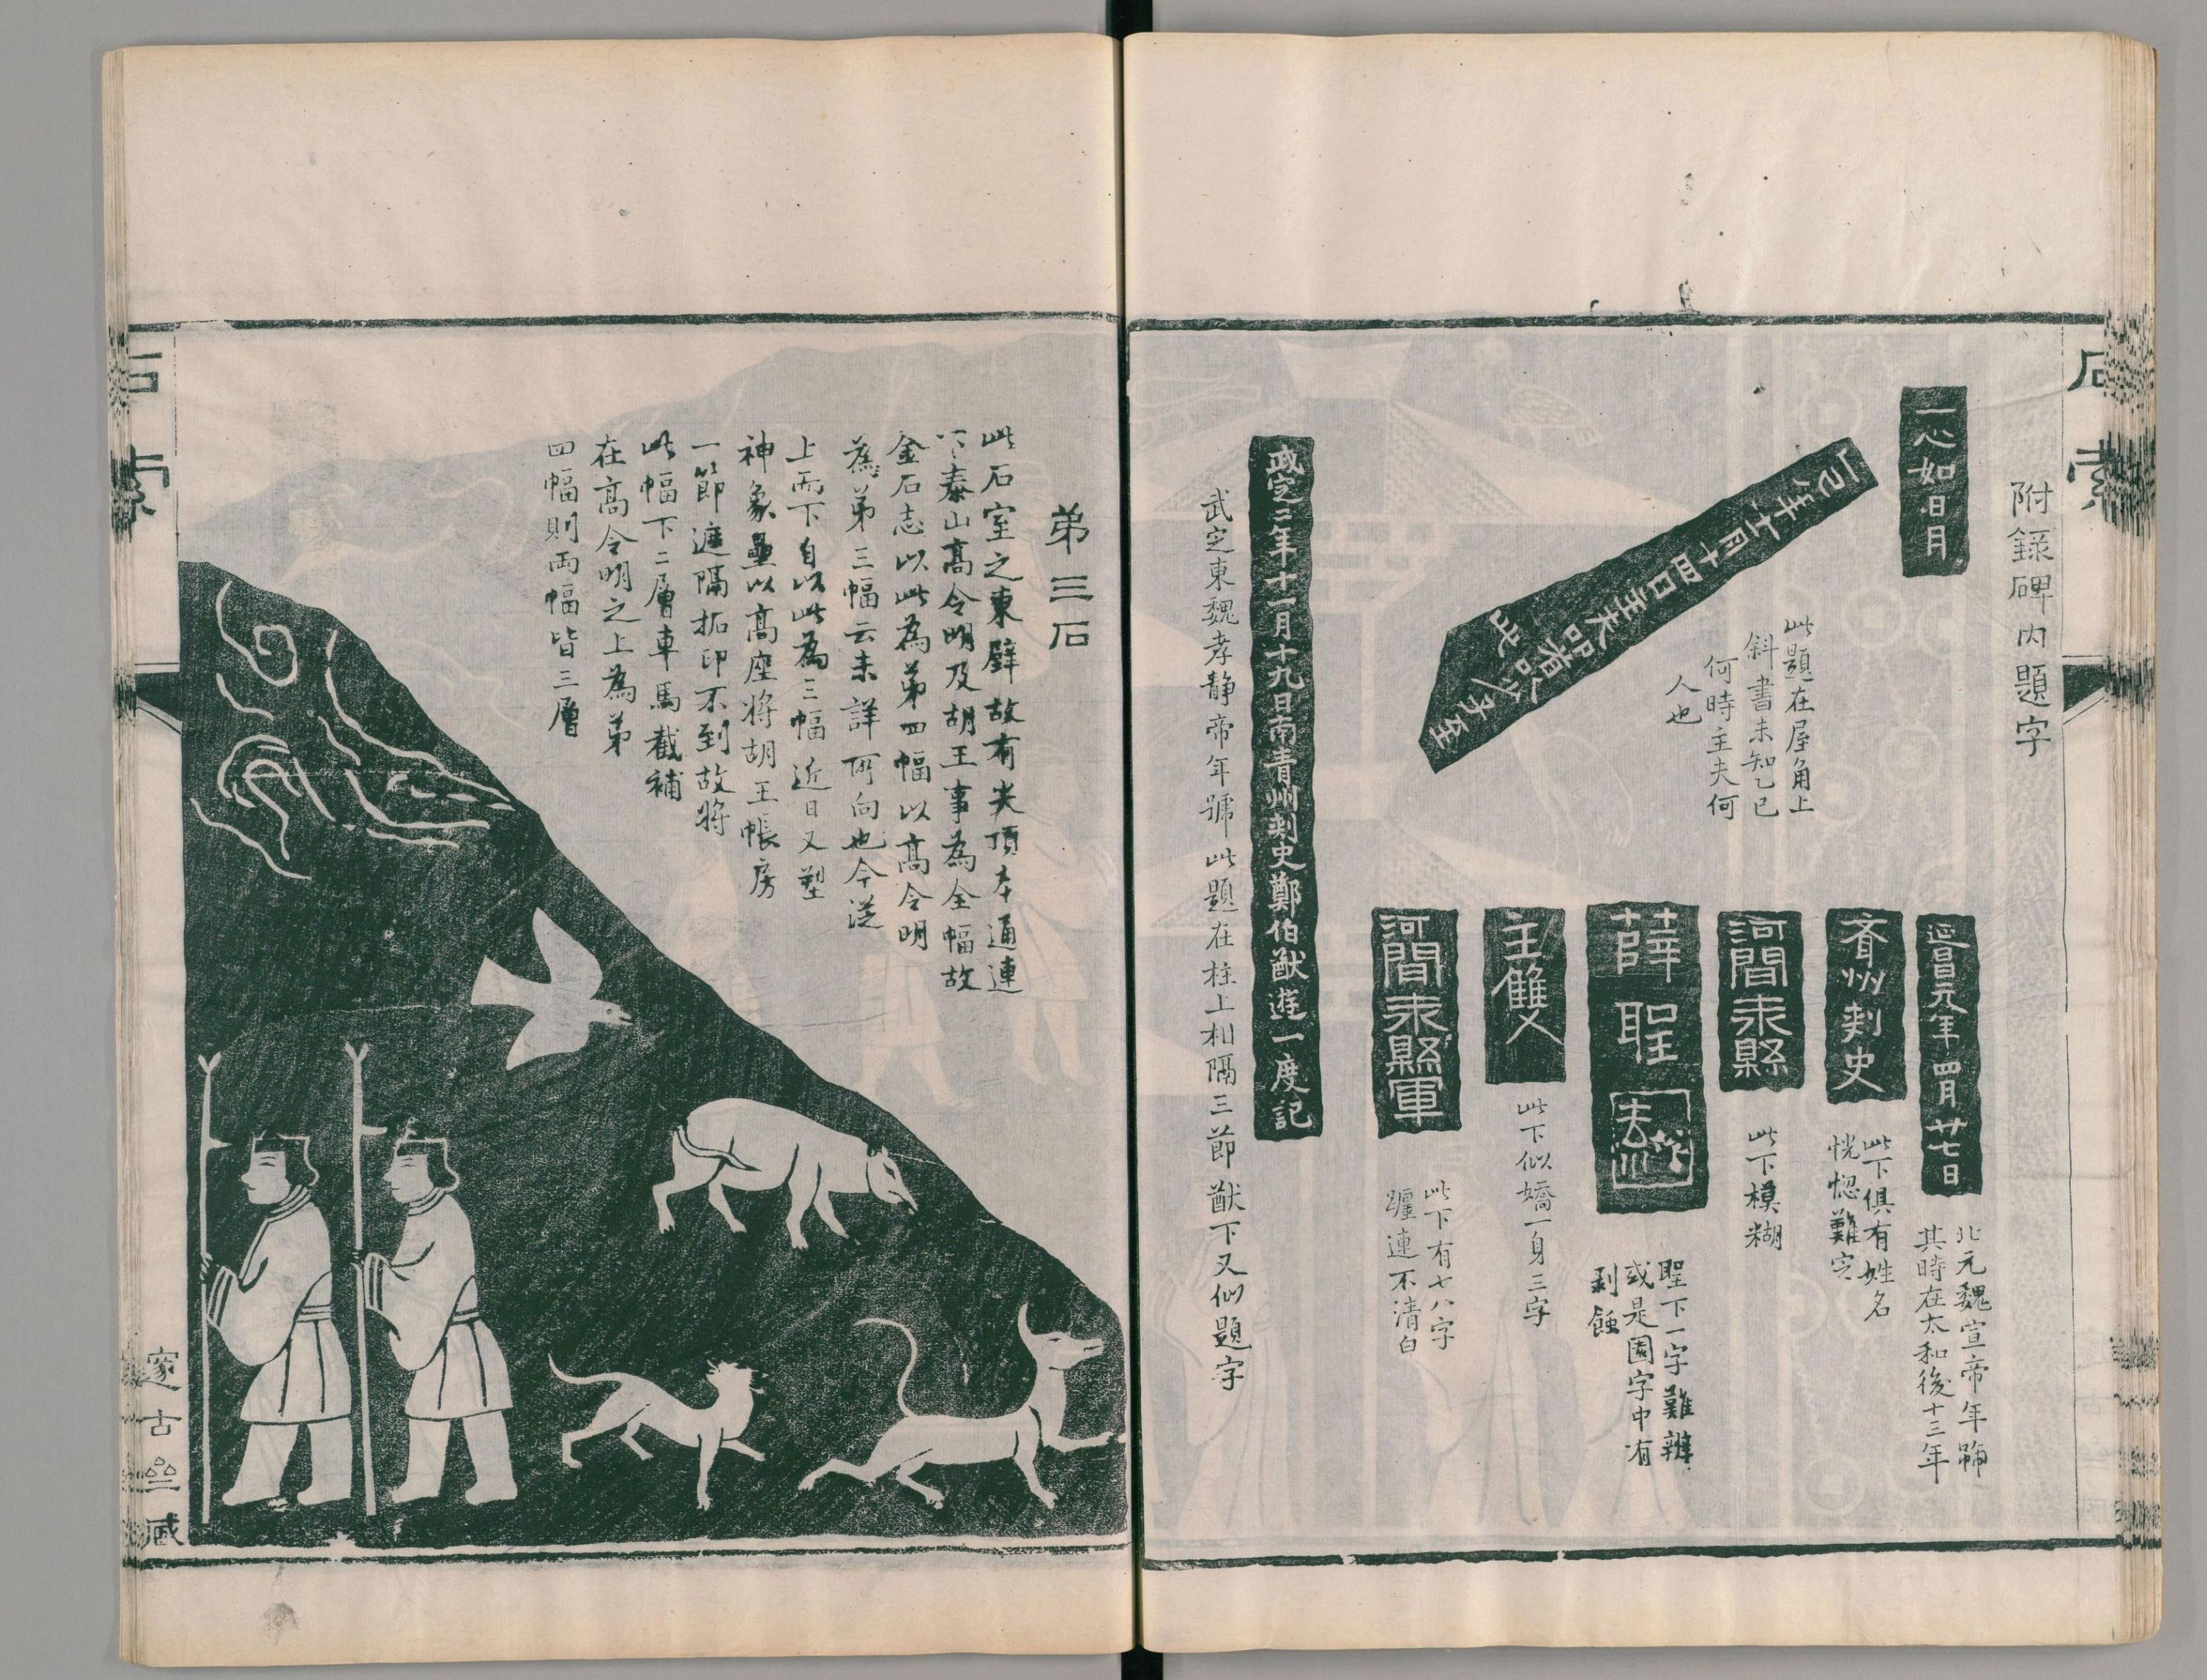 石索
附錄碑內題字
一心如日月
此題在屋角上
斜書未知乙已
何時主夫何
人也
延昌元年四月廿七日
北元魏宣帝年號
其時在太和後十三年
齊州刺史
此下俱有姓名
恍惚難定
河間永縣
此下模糊
薛聖
聖下一字難辨
或是園字中有
剥蝕
主雙
此下似嬌一身三字
河間永縣軍
此下有七八字
躔連不清白
武定二年十一月十九日南青州刺史鄭伯猷遊一度記
武定東魏孝靜帝年號此題在柱上相隔三節猷下又似題字
弟三石
此石室之東壁故有尖頂本通連
下泰山高令明及胡王事為全幅故
金石志以此為弟四幅以高令明
為弟三幅云未詳所向也今從
上而下自以此為三幅近日又塑
神象壘以高座將胡王帳房
一節遮隔拓印不到故將
此幅下二層車馬截補
在高令明之上為弟
四幅則兩幅皆三層
石索
邃古
藏